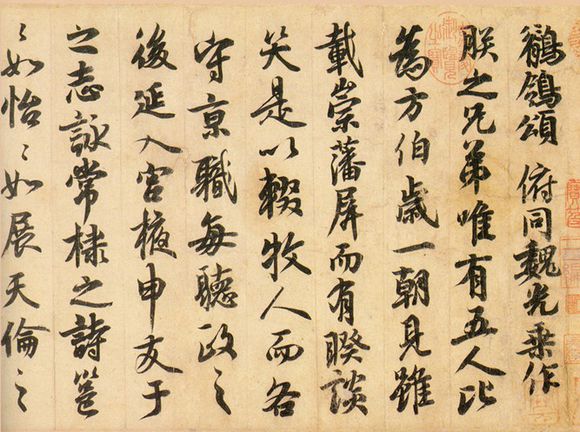 鶺鴒頌 俯同魏光乘作
朕之兄弟唯有五人比
為方伯歲一朝見雖
載崇藩屏而有睽談
笑是以輟牧人而各
守京職每聽政之
後延入宮掖申友于
之志詠常棣之詩邕
〻如怡〻如展天倫之